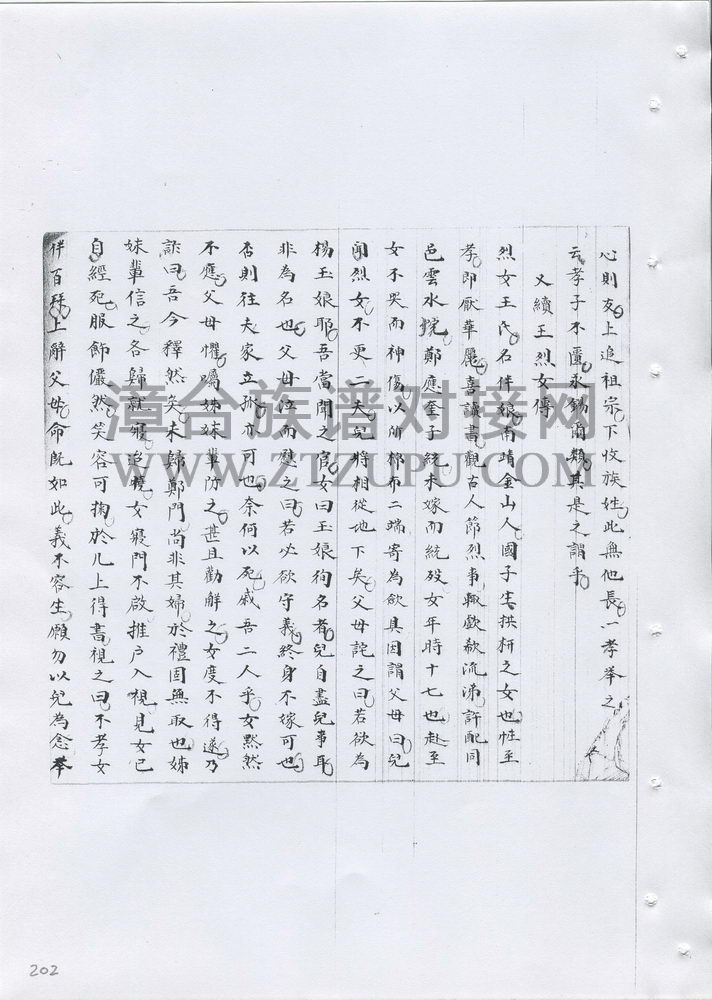 心則友上追祖宗下收族姓此無他長一孝舉之
云孝子不匱永錫爾類其是之謂乎
又續王烈女傳
烈女王氏名伴娘南靖金山人國子生拱枅之女也性至
孝即厭華麗喜讀書觀古人節烈事輒歔欷流涕許配同
邑雲水 鄭應奎子統未嫁而統歿女年時十七也赴至
女不哭而神傷以所棉布二端寄為斂具因謂父母曰兒
聞烈女不更二夫兒將相從地下矣父母詫之曰若欲為
楊玉娘耶吾當聞之官女曰玉娘徇名者兒自盡兒事耳
非為名也父母泣而慰之曰若必欲守義終身不嫁可也
否則往夫家立孤亦可也奈何以死戚吾二人乎女默然
不應父母懼囑姊妹輩防之甚且勸解之女度不得遂乃
詐曰吾今釋然矣未歸鄭門尚非其婦於禮固無取也姊
妹輩信之各歸就寢迨 女寢門不啟推户入視見女已
自經死服飾儼然笑容可掬於几上得書視之曰不孝女
伴百拜上辭父母命既如此義不容生願勿以兒為念舉
漳台族谱对接网
WWW.ZTZUPU.COM
202